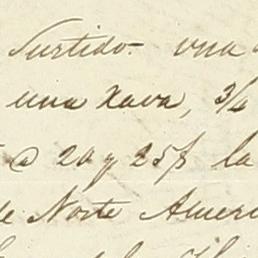 Surtido una
una Xava, 3/4
@ 20 y 25 la
de Norte Ameri